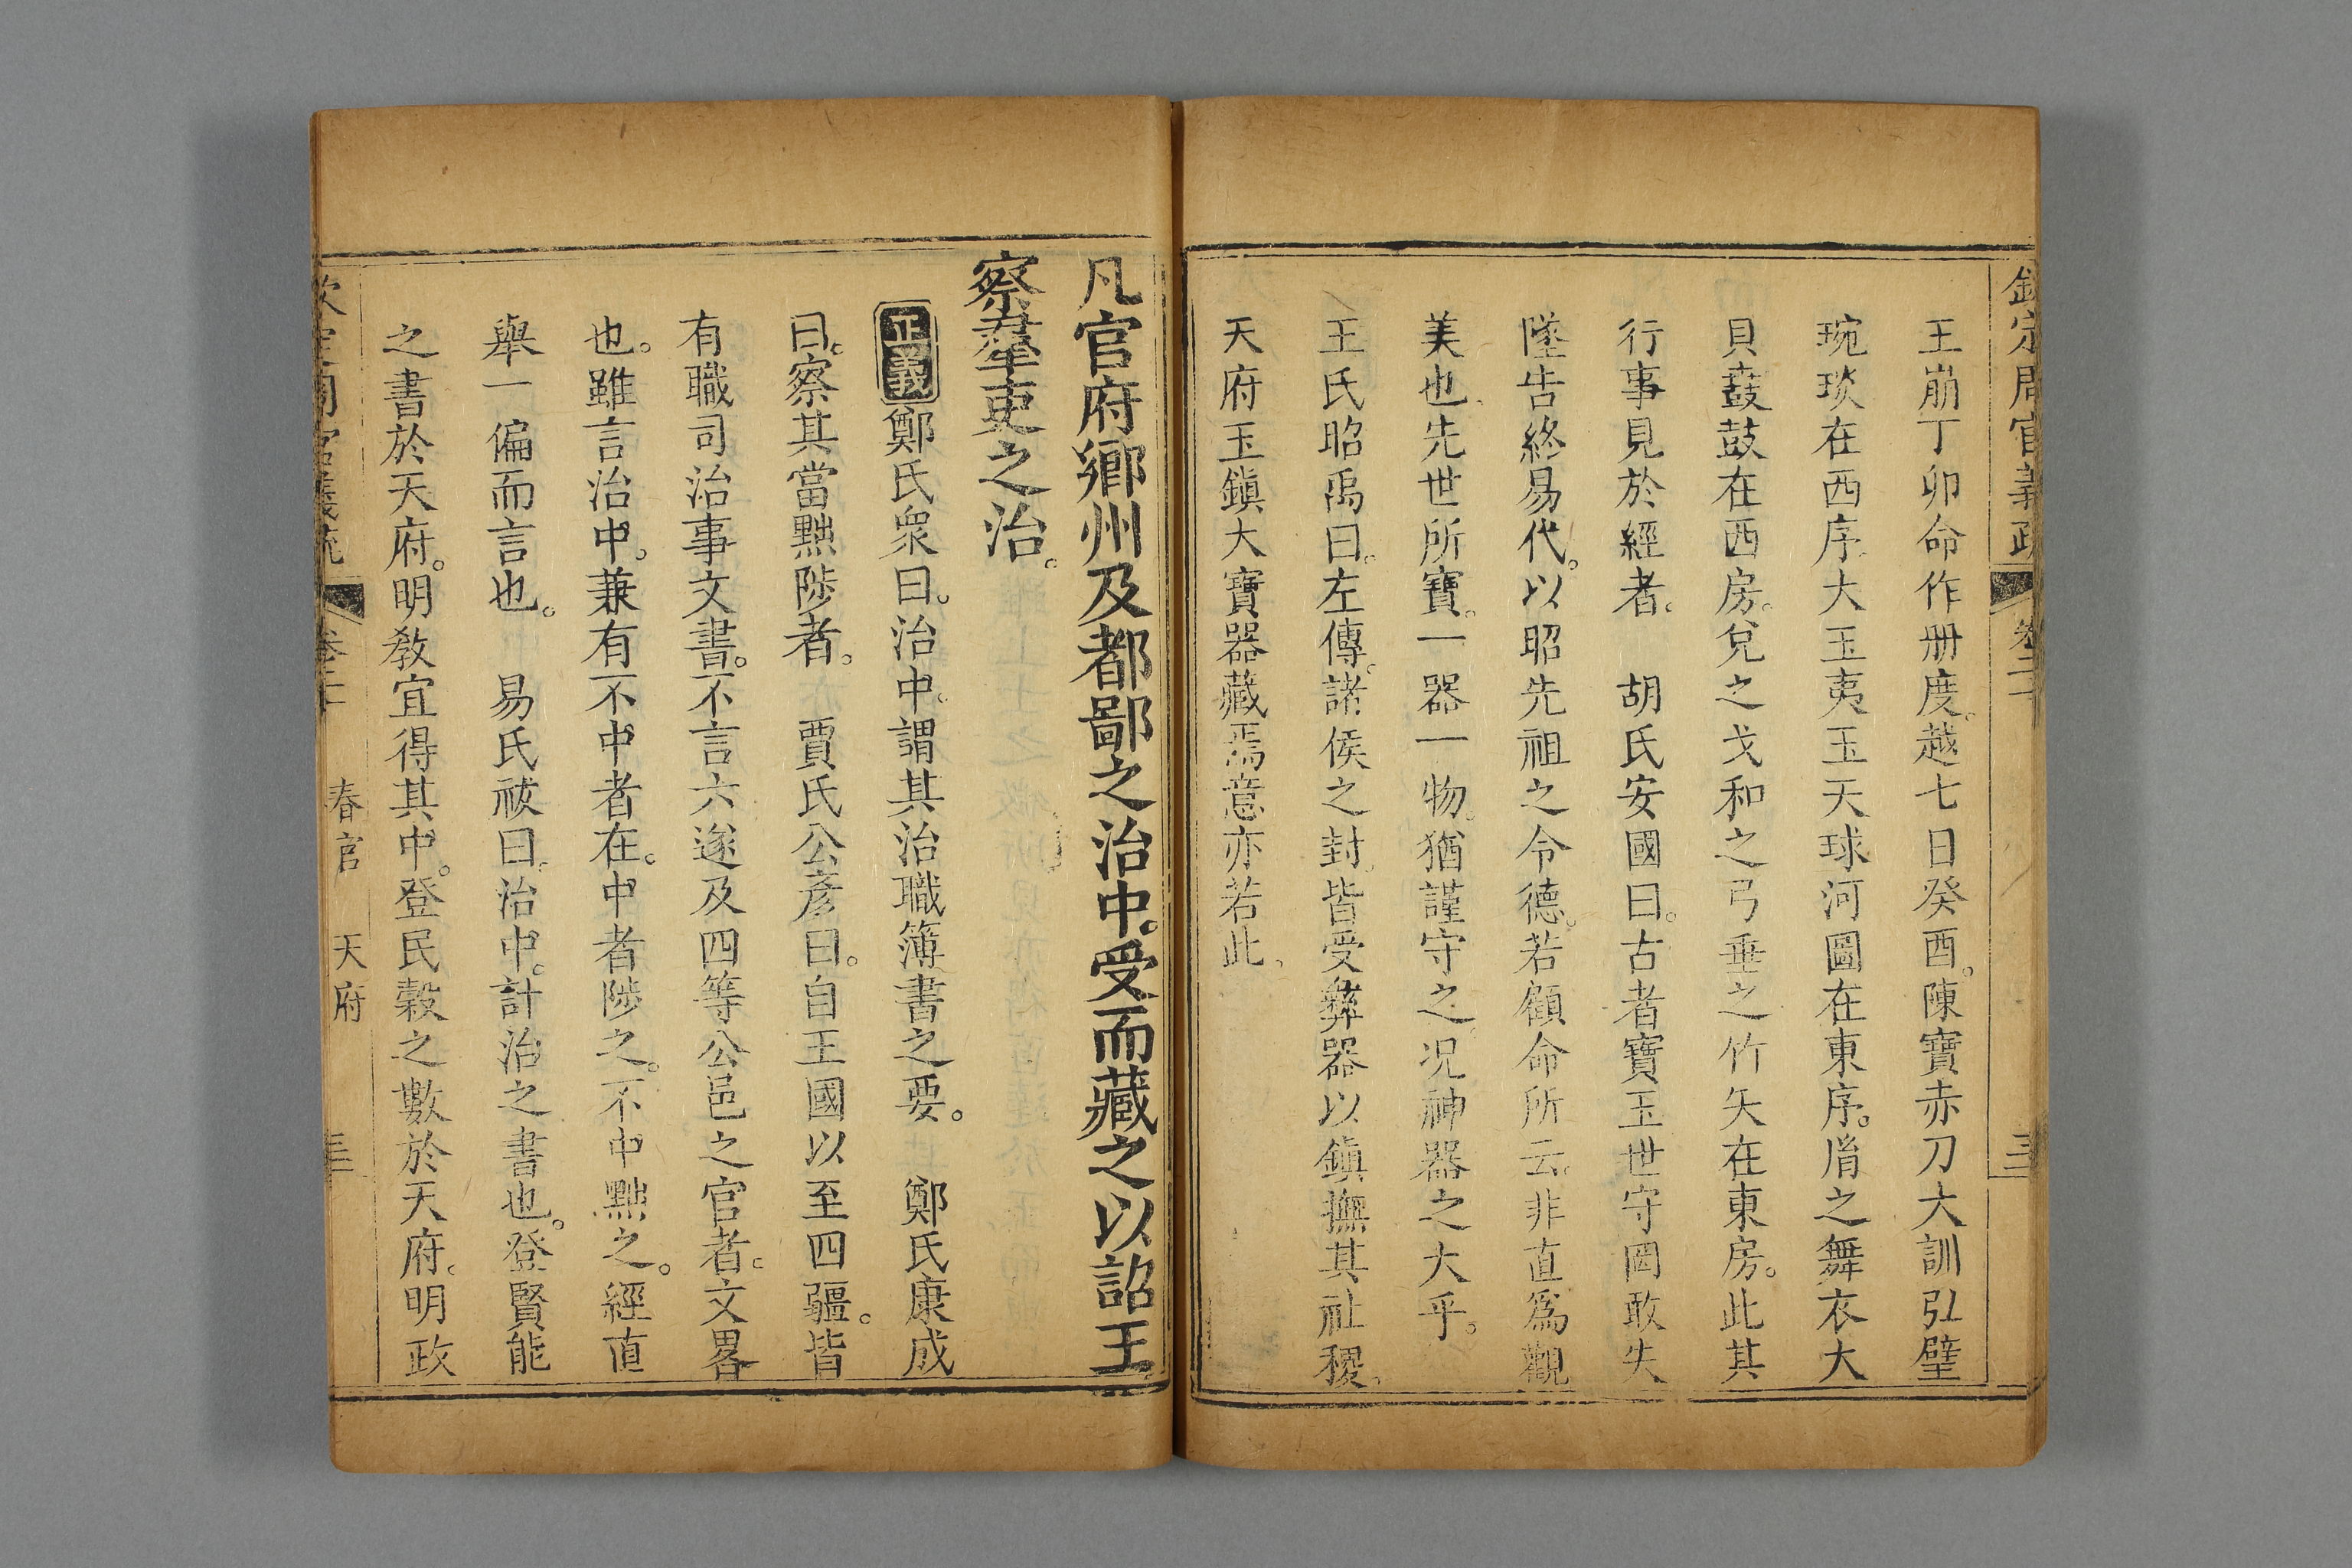 欽定周官義疏 卷二十
王崩丁卯命作册度。越七日癸酉。陳寶赤刀大訓弘璧
琬琰在西序。大玉夷玉天球河圖在東序。胤之舞衣大
貝鼖鼓在西房。兌之戈和之弓垂之竹矢在東房。此其
行事見於經者。 胡氏安國曰。古者寶玉世守罔敢失
墜告終易代。以昭先祖之令德。若顧命所云。非直爲觀
美也。先世所寶。一器一物。猶謹守之。况神器之大乎。
王氏昭禹曰。左傳。諸侯之封。皆受彝器以鎭撫其社稷。
天府玉鎭大寶器藏焉意亦若此。
凡官府鄉州及都鄙之治中。受而藏之以詔王
察羣吏之治。
正義鄭氏衆曰。治中。謂其治職簿書之要。 鄭氏康成
曰。察其當黜陟者。 賈氏公彥曰。自王國以至四疆。皆
有職司治事文書。不言六遂及四等公邑之官者。文畧
也。雖言治中。兼有不中者在。中者陟之。不中黜之。經直
舉一偏而言也。 易氏祓曰。治中。計治之書也。登賢能
之書於天府。明敎宜得其中。登民穀之數於天府。明政
欽定周官義疏 卷二十 春官 天府